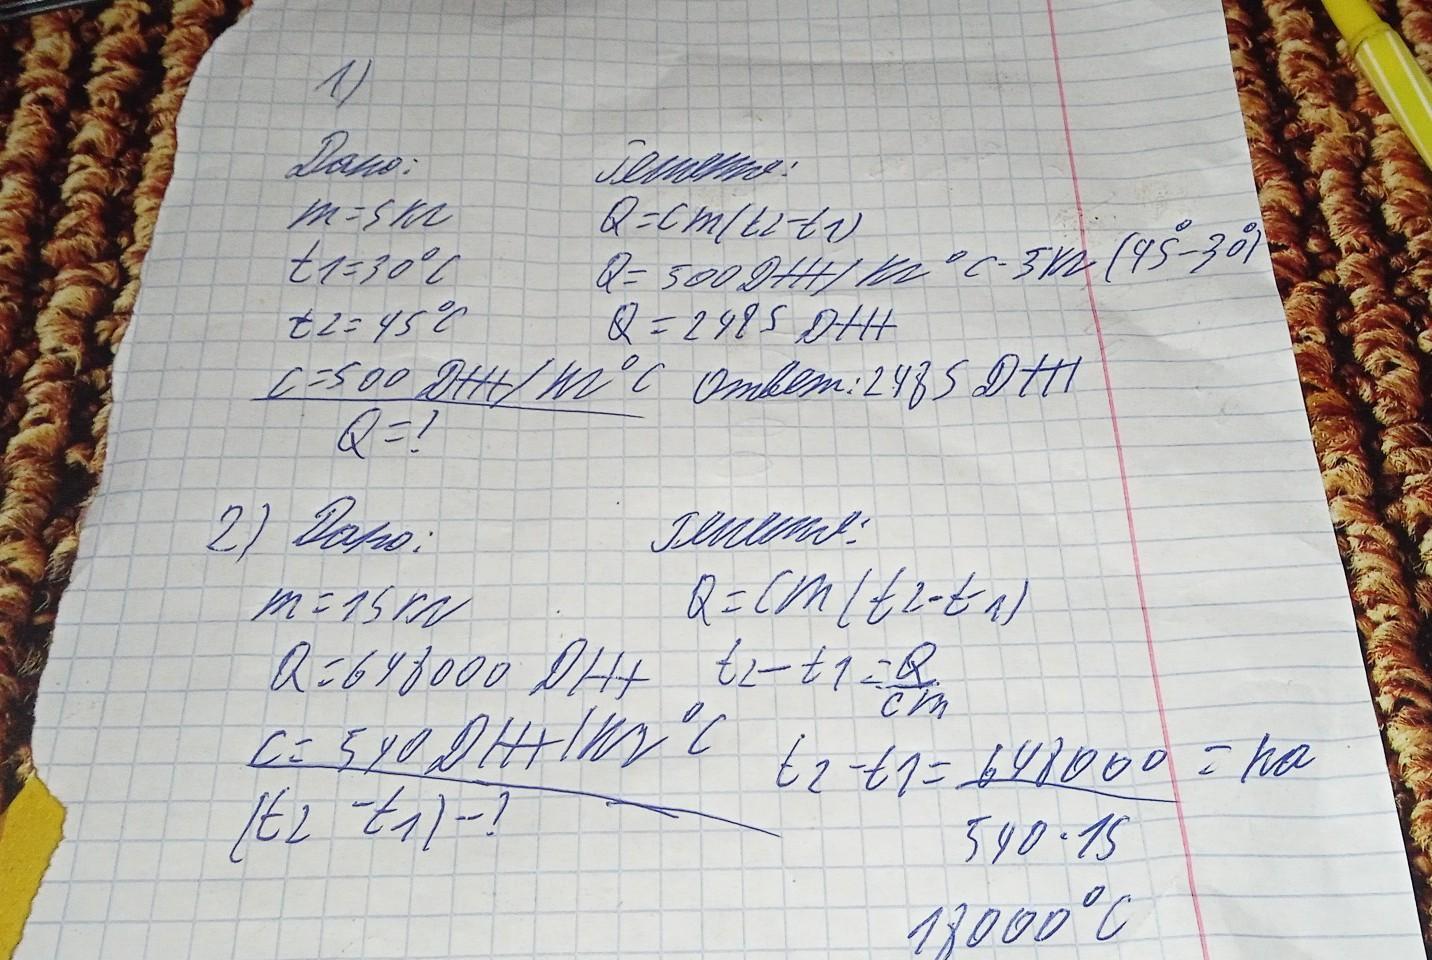 1)
Дано: Решение:
m=5кг Q=cm(t2-t1)
t1=30°C Q=500Дж/кг°C·5кг(45°-30°)
t2=45°C Q=2485 Дж
c=500 Дж/кг°C Ответ: 2485 Дж
Q=?
2) Дано: Решение:
m=15кг Q=cm(t2-t1)
Q=648000 Дж t2-t1=Q/cm
c=540Дж/кг°C t2-t1=648000/540·15=на
(t2-t1)-?
18000°C